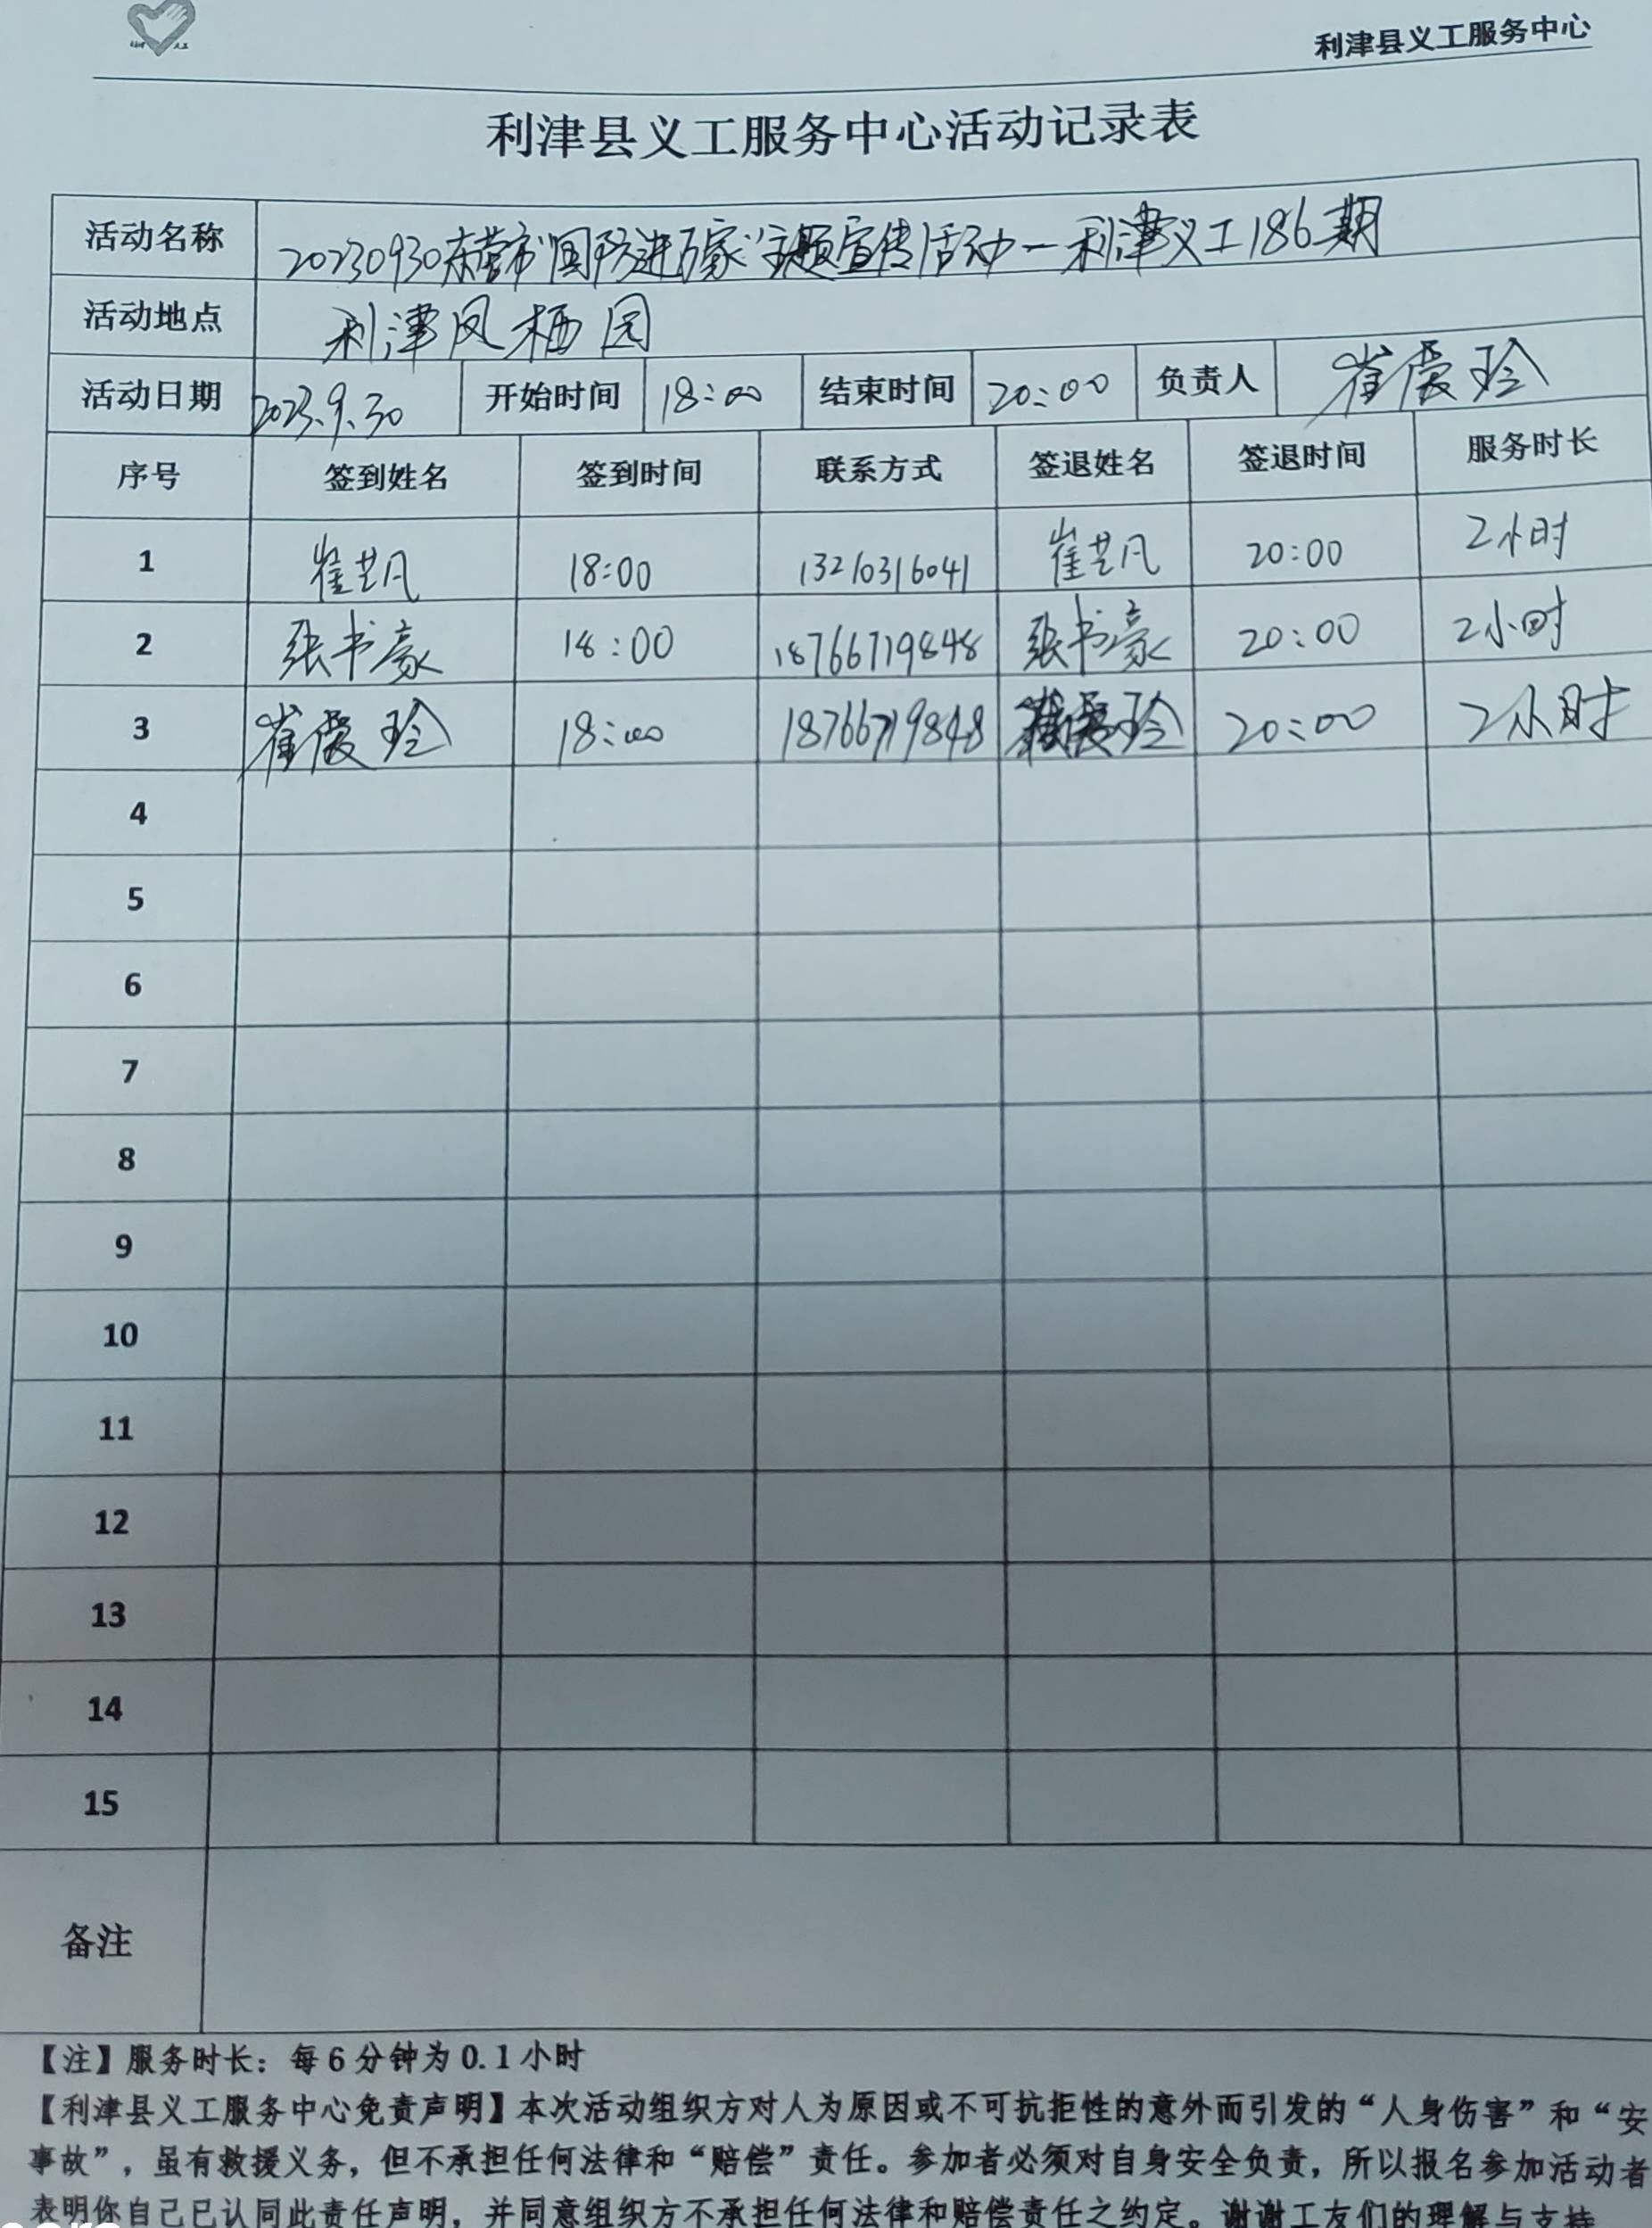 利津县义工服务中心
利津县义工服务中心活动记录表
活动名称 20230930东营市"国防进万家"主题宣传活动一利津义工186期
活动地点 利津凤栖园
活动日期 2023.9.30 开始时间 18:00 结束时间 20:00 负责人 崔霞玲
序号 签到姓名 签到时间 联系方式 签退姓名 签退时间 服务时长
1 崔艺凡 18:00 13210316041 崔艺凡 20:00 2小时
2 张书豪 18:00 18766719848 张书豪 20:00 2小时
3 崔霞玲 18:00 18766719848 崔霞玲 20:00 2小时
4
5
6
7
8
9
10
11
12
13
14
15
备注
【注】服务时长：每6分钟为0.1小时
【利津县义工服务中心免责声明】本次活动组织方对人为原因或不可抗拒性的意外而引发的“人身伤害”和“安
事故”，虽有救援义务，但不承担任何法律和“赔偿”责任。参加者必须对自身安全负责，所以报名参加活动者
表明你自己已认同此责任声明，并同意组织方不承担任何法律和赔偿责任之约定。谢谢工友们的理解与支持